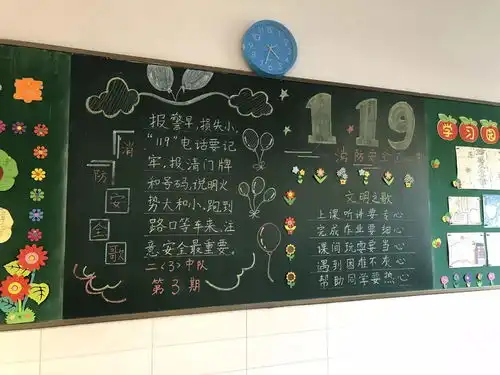 消防安全歌
报警早,损失小,
"119"电话要记
牢,报清门牌
和号码,说明火
势大和小,跑到
路口等车来,注
意安全最重要。
二(3)中队
第3期
119
消防安全
文明之歌
上课听讲要专心
完成作业要细心
课间玩耍要当心
遇到困难不灰心
帮助同学要热心
学习园